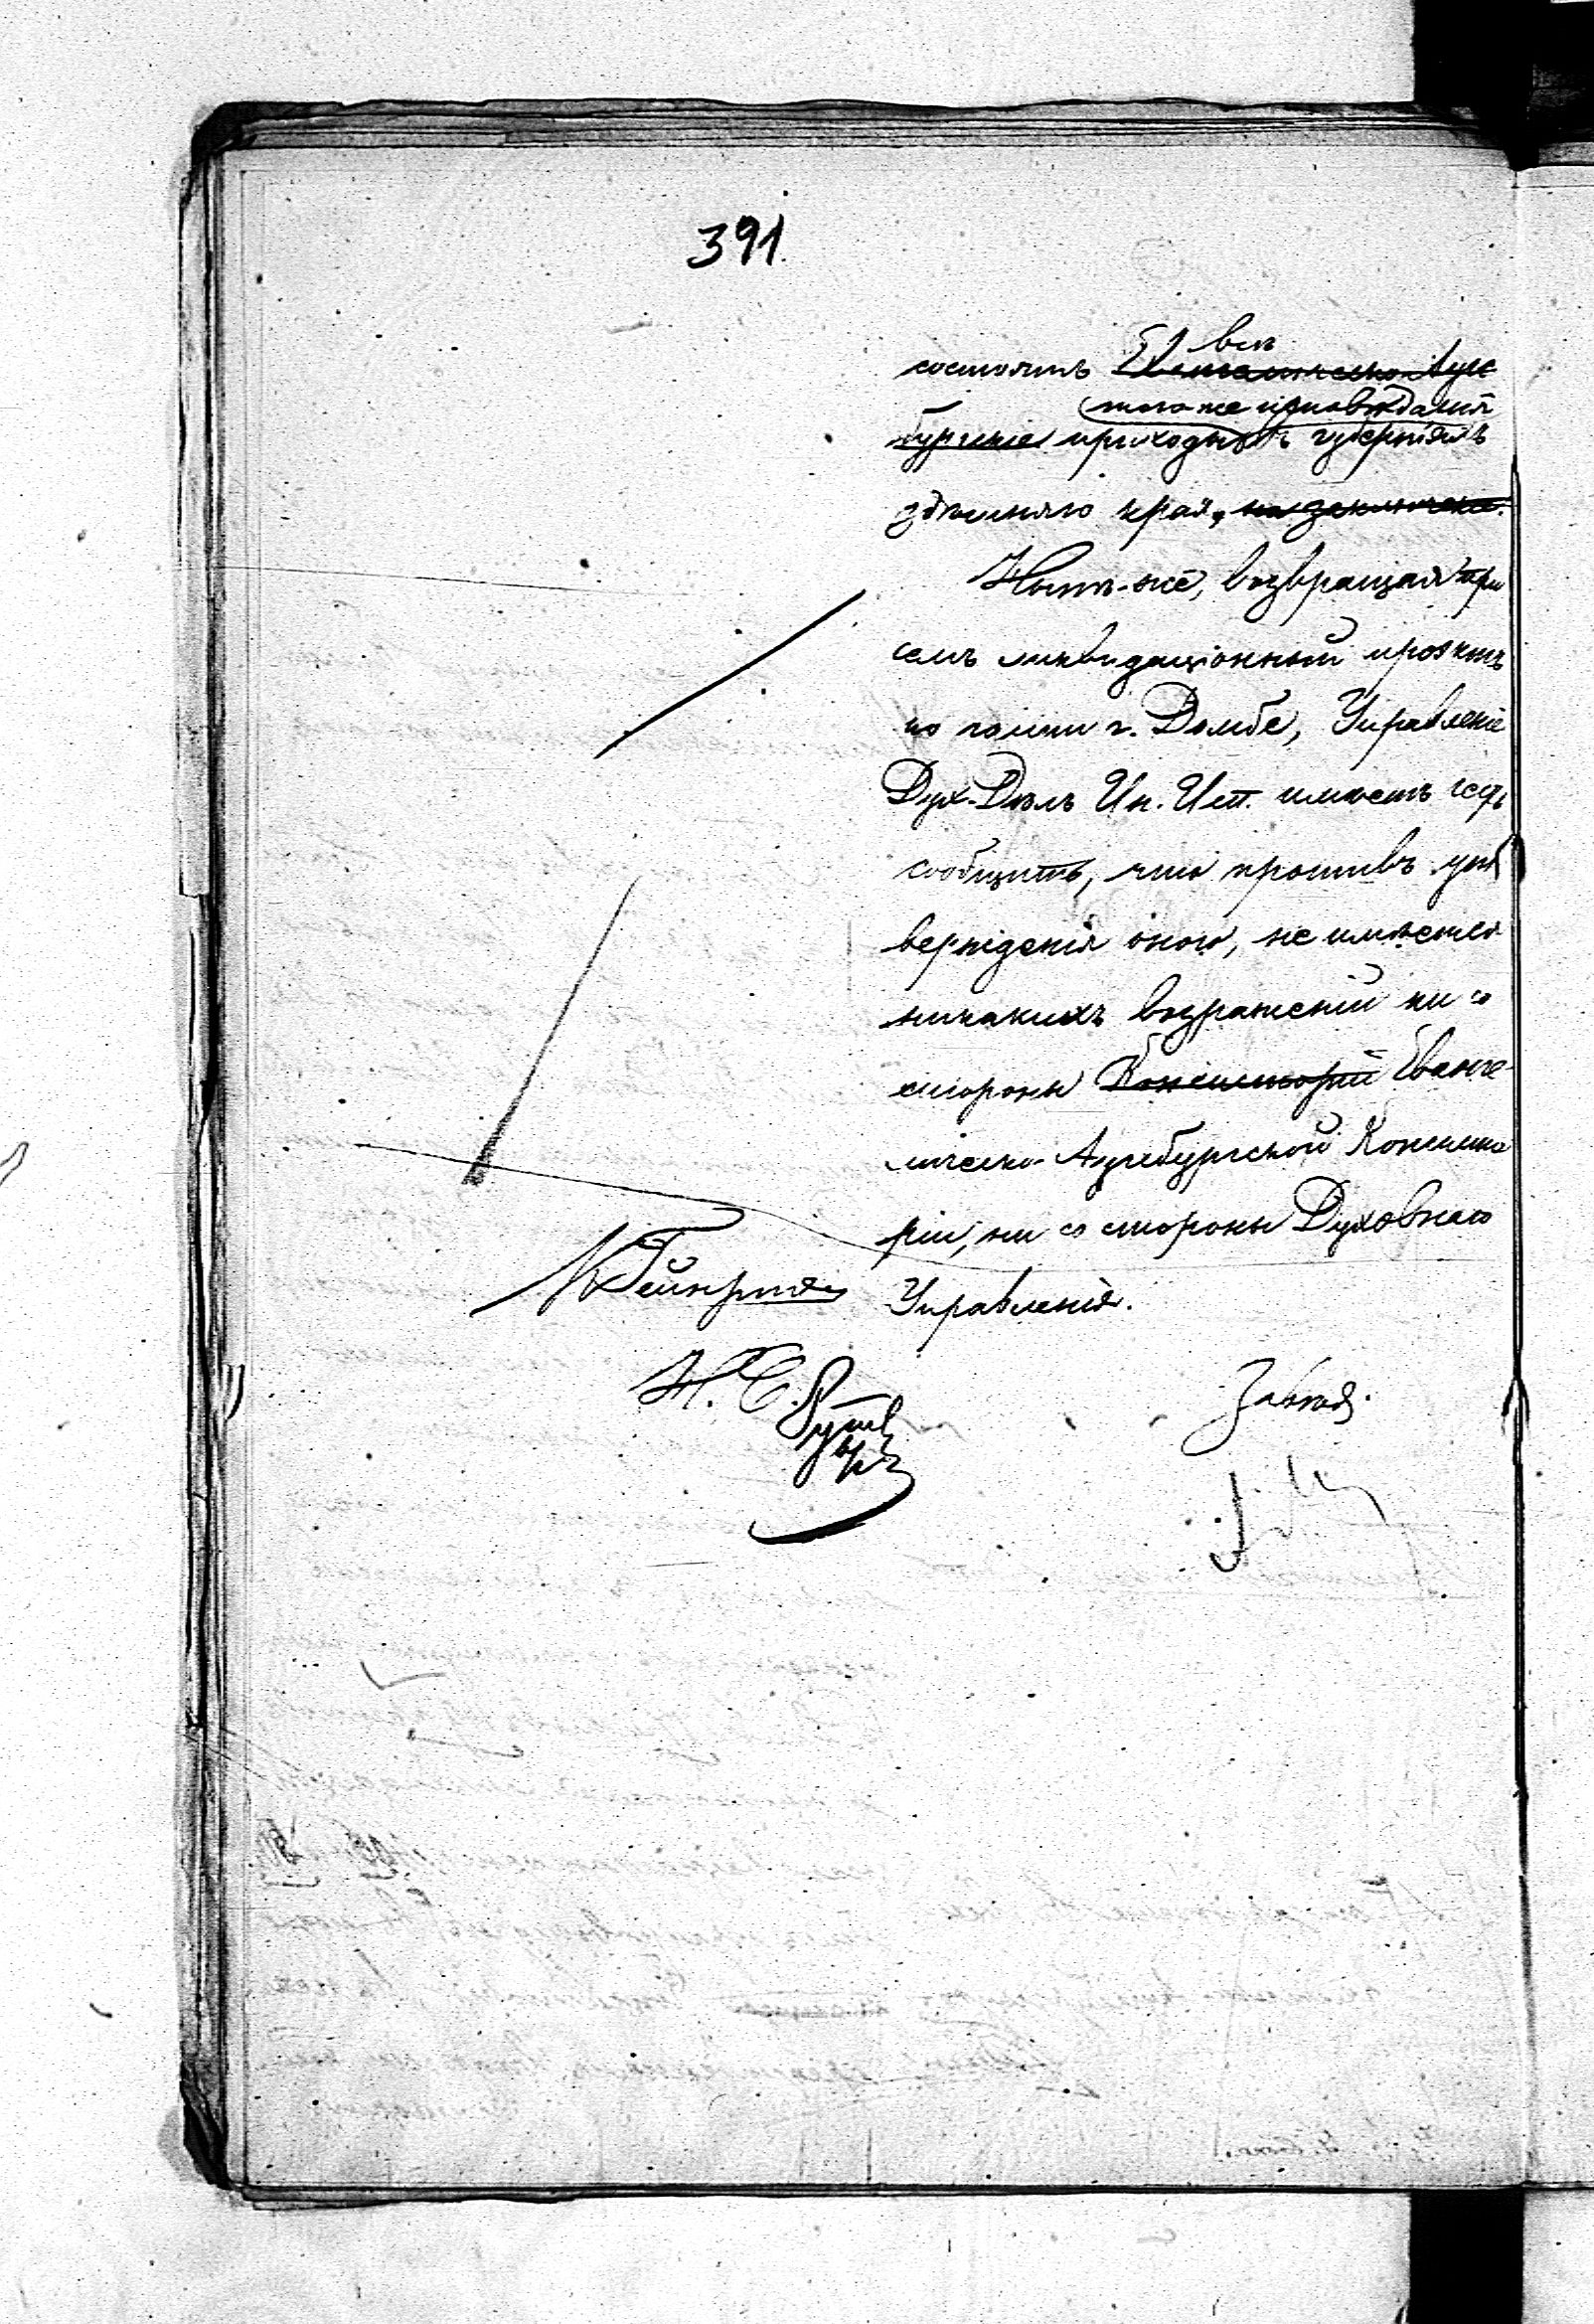 391.
всѣ
состоятъ Евангелическо-Аугс
того же исповѣданія
бургскіе приходы въ губерніяхъ
здѣшняго края, на заключеніе.
Нынѣ-же, возвращая при
семъ ликвидаціонный проэктъ
по гмин г. Домбе, Управленіе
Дух. Дѣлъ Ин. Исп. имѣетъ честь
сообщить, что противъ ут
вержденія онаго, не имѣется
никакихъ возраженій ни со
стороны Консисторіи Еванге-
лическо-Аугсбургской Консисто
ріи, ни со стороны Духовнаго
Управленія.